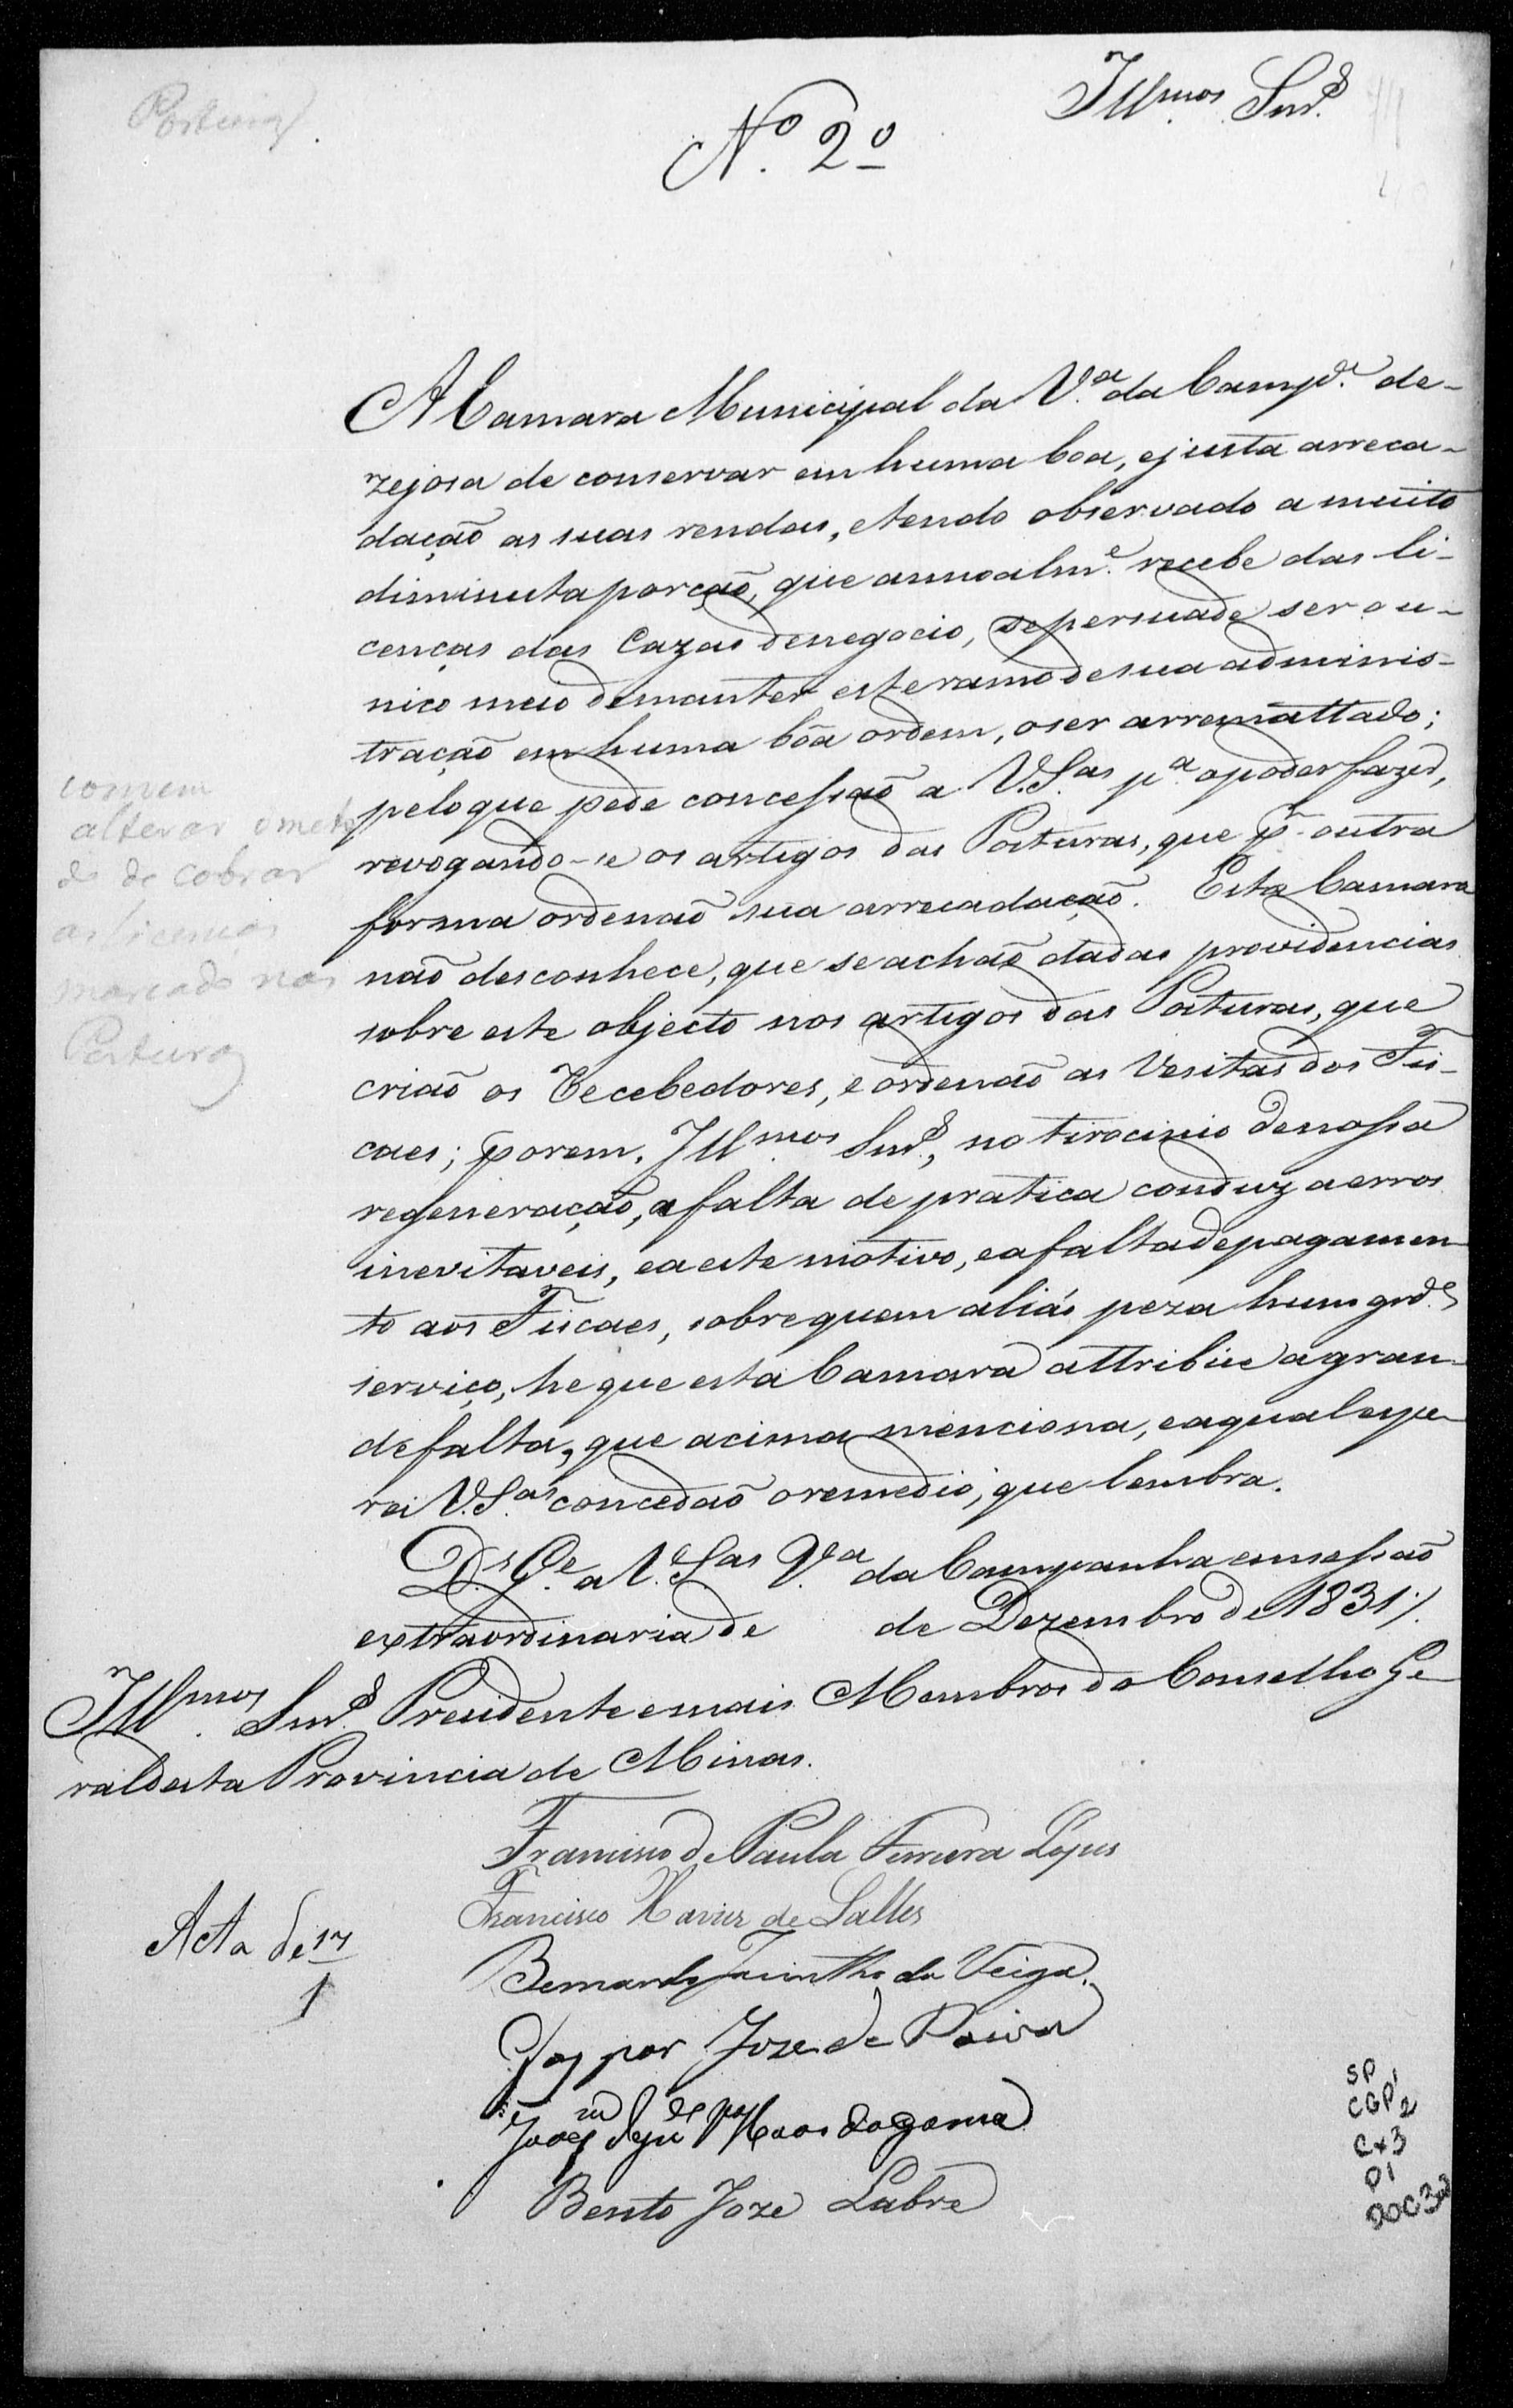 Posturas.
Nº 2º
Ill.mos Snr.s
A Camara Municipal da V.a da Camp.a de-
zejosa de conservar em huma boa, e justa arreca-
dação as suas rendas, e tendo observado a muito
diminuta porção, que annoalm.e recebe das li-
cenças das Cazas de negocio, se persuade ser o u-
nico meio de manter este ramo de sua adminis-
tração em huma bôa ordem, o ser arremattado;
pelo que pede concessão a V.S.as p.a o poder fazer,
revogando-se os artigos das Posturas, que p.r outra
forma ordenão sua arrecadação. Esta Camara
não desconhece, que se achão dadas providencias
sobre este objecto nos artigos das Posturas, que
crião os Recebedores, e ordenão as Vesitas dos Fis-
caes; porem, Ill.mos Snr.s, no tirocinio de nossa
regeneração, a falta de pratica conduz a erros
inevitaveis, e a este motivo, e a falta de pagamen-
to aos Fiscaes, sobre quem aliás peza hum grd.e
serviço, he que esta Camara attribue a gran-
de falta, que acima menciona, e a qual espe-
ra V.S.as concedão o remedio, que lembra.
D.s G.e a V.S.as V.a da Campanha em sessão
extraordinaria de de Dezembro de 1831
Ill.mos Snr.s Presidente e mais Membros do Conselho Ge-
ral desta Provincia de Minas.
convem
alterar o meto
do de cobrar
as licenças
marcado nas
Posturas
Francisco de Paula Ferreira Lopes
Francisco Xavier de Salles
Bernardo Jacintho da Veiga
Gaspar Joze de Paiva
Joaq.m Ignacio da Gama
Bento Joze Labre
Acta de 17
1
SP
CGP1
2
Cx3
D1
DOC 30